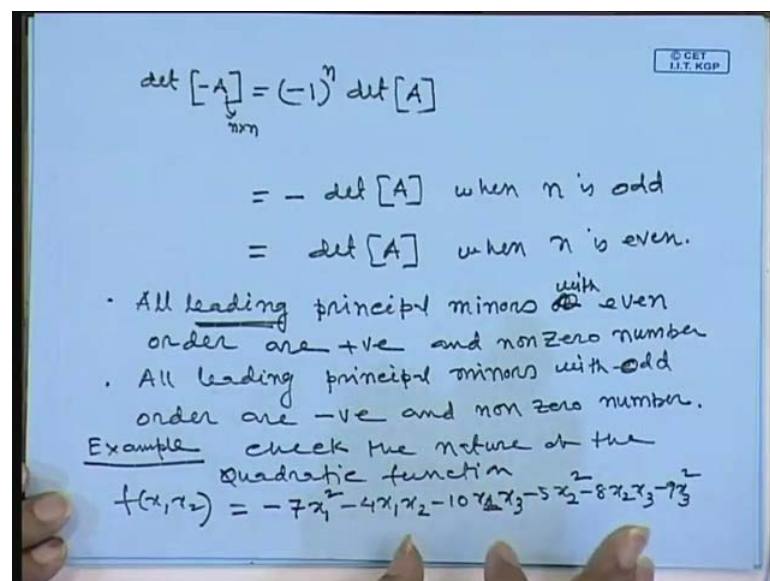 © CET
I.I.T. KGP
det [-A] = (-1)^n det [A]
n×n
= - det [A] when n is odd
= det [A] when n is even.
· All leading principal minors with even
order are +ve and nonzero number
· All leading principal minors with odd
order are -ve and non zero number.
Example check the nature of the
Quadratic function
f(x₁x₂) = -7x₁² - 4x₁x₂ - 10x₁x₃ - 5x₂² - 8x₂x₃ - 9x₃²